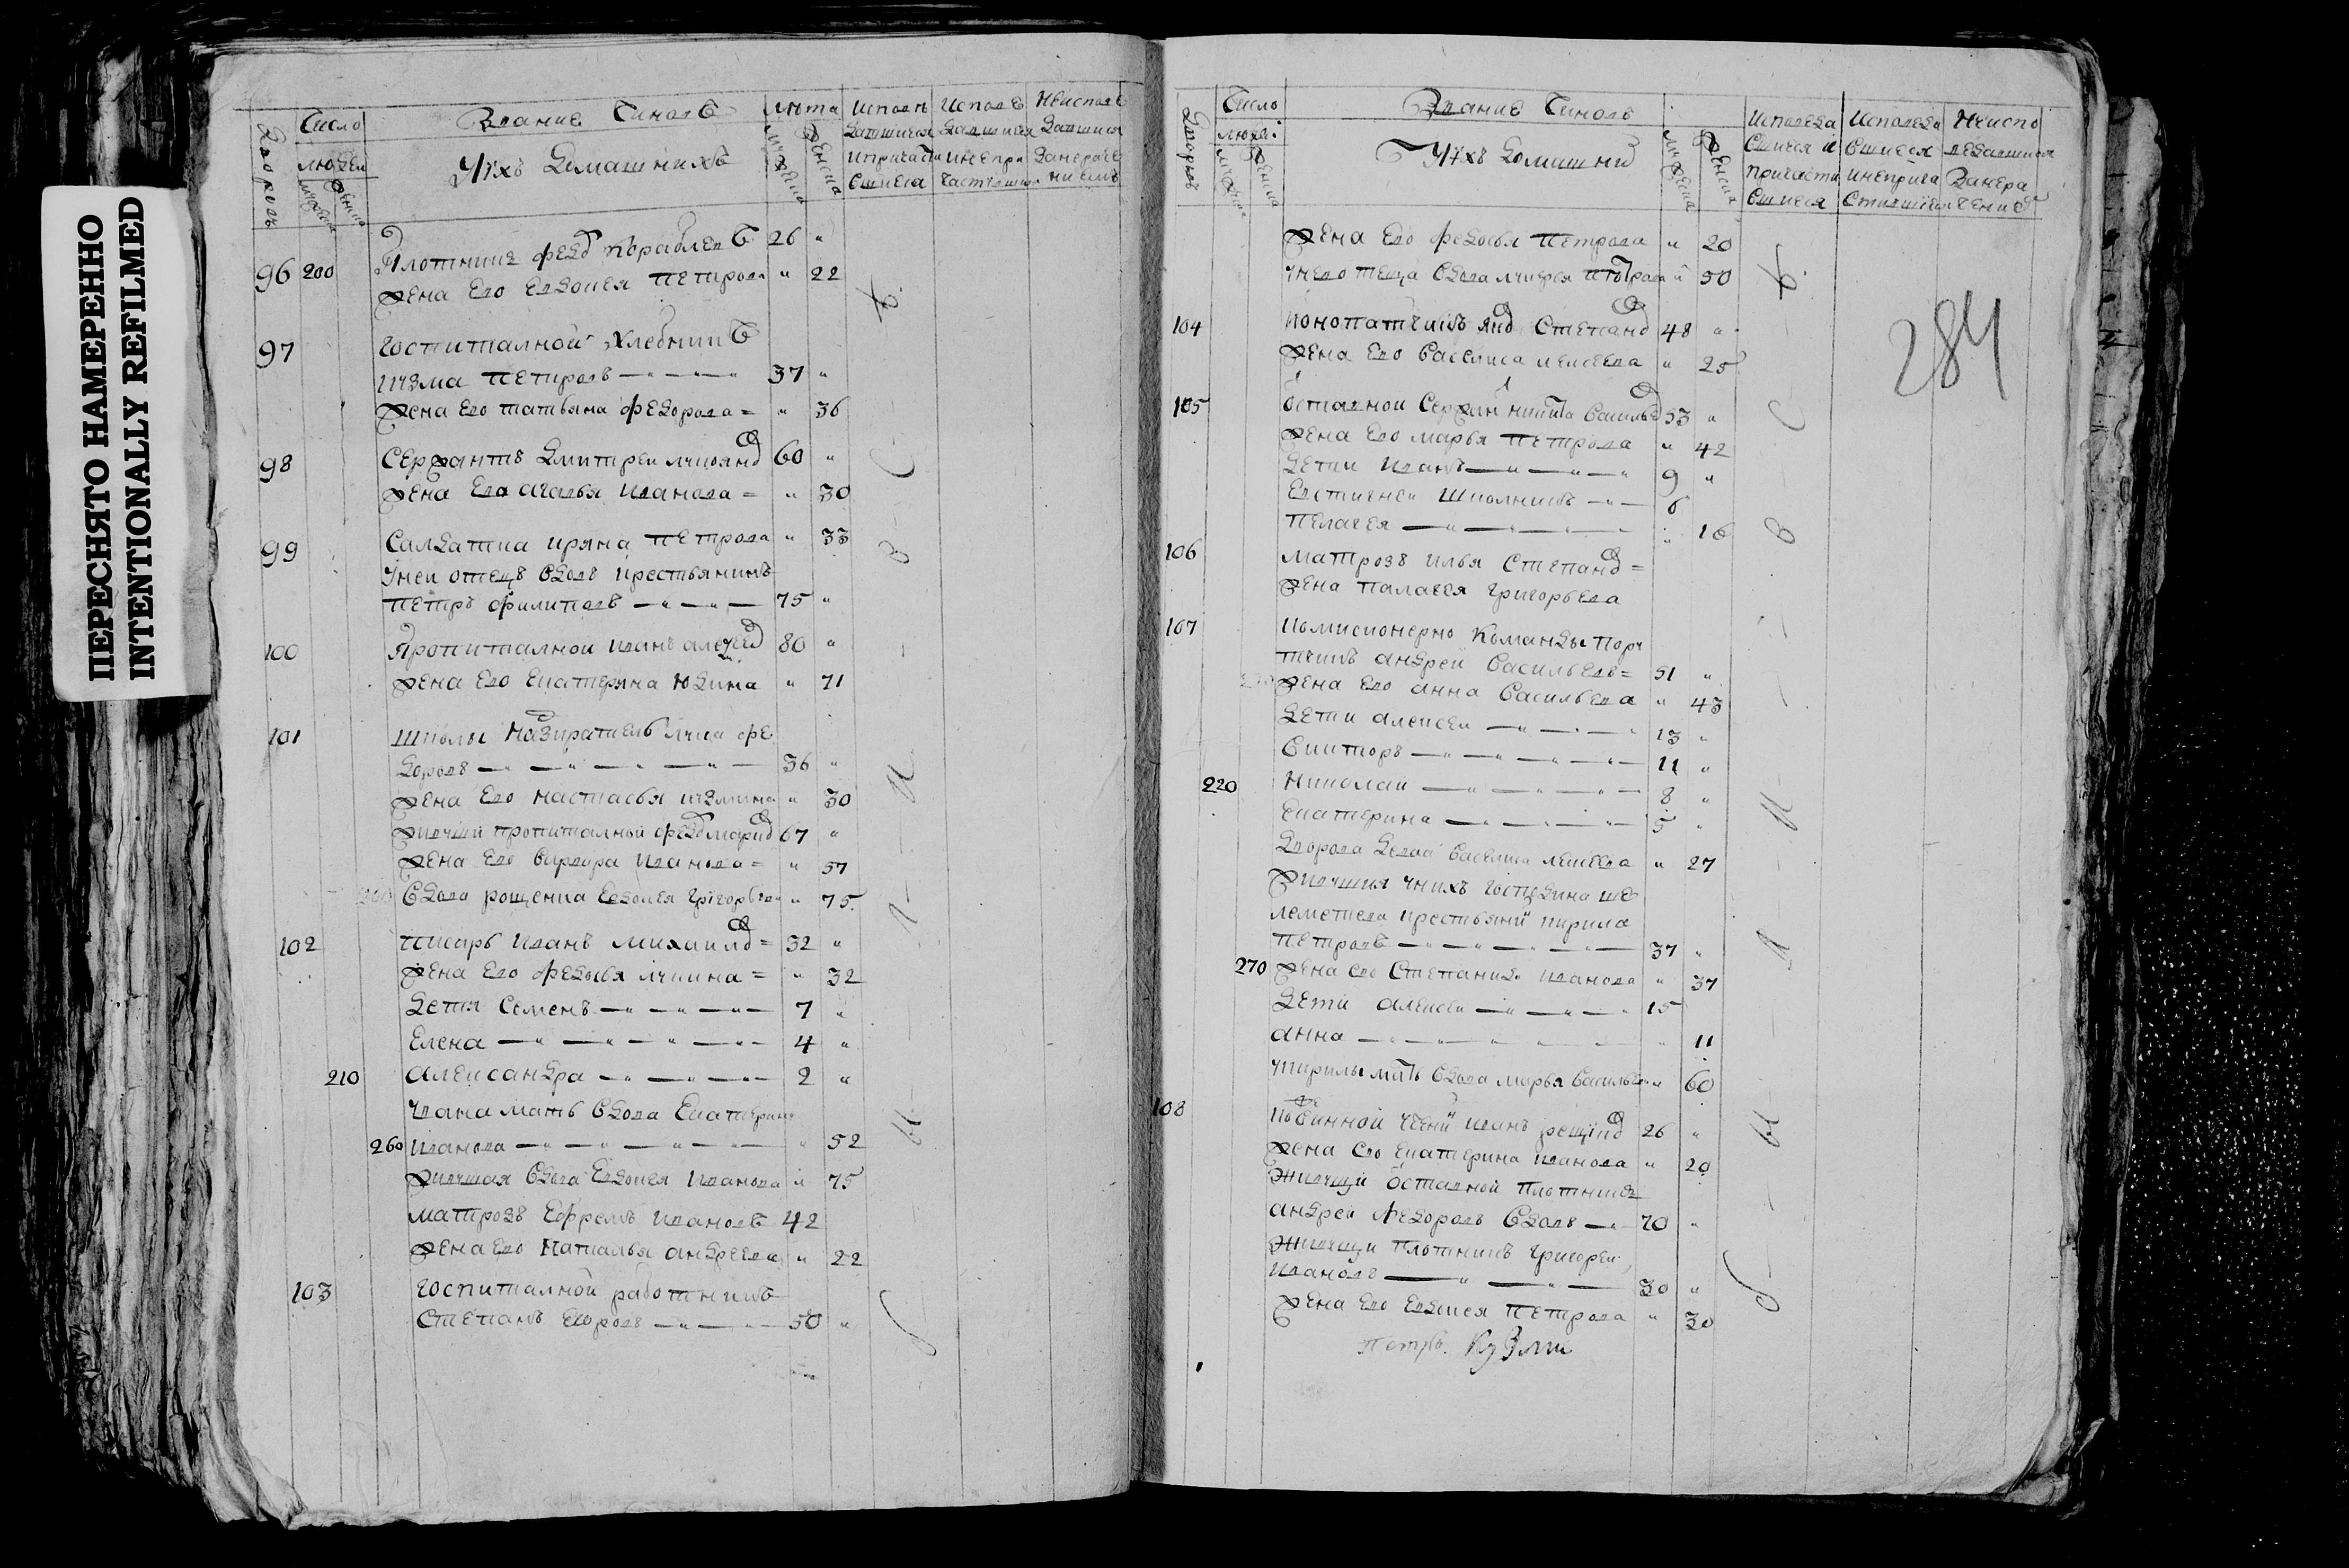 ПЕРЕСНЯТО НАМЕРЕННО
INTENTIONALLY REFILMED
Дворовъ
Число
людеи
Звание Чиновъ
Ихъ Домашнихъ
лѣта
Исповѣ Исповѣ Неисповѣ
давшиеся давшиеся давшиеся
ипричасти инепри
вшиеся
96 200 Плотникъ Фед Кораблевъ 26 "
жена ево Евдокея Петрова " 22
97 Госпиталной хлебникъ
Кузма Петровъ 37 "
жена ево Татьяна Федорова = " 36
98 Сержантъ Дмитреи Лукоянов 60 "
жена ево Агафья Иванова = " 30
99 Салдатка Ирина Петрова " 33
унеи отецъ вдовъ крестьянинъ
Петръ Филиповъ 75 "
100 Пропиталной Иванъ 80 "
жена ево Екатерина Юдина " 71
101 Школы Надзиратель Лука Фе
доровъ 36 "
жена ево Настасья Кузмина " 30
живущий пропиталной Фед Марков 67 "
жена ево Варвара Иванова = " 57
вдова Евдокея Григорьева " 75
102 Писарь Иванъ Михаилов = 32 "
жена ево Федосья Лукина = " 32
Дети Семенъ 7 "
Елена 4 "
210 Александра 2 "
Ивана мать вдова Екатерина
260 Иванова " 52
живущая вдова Евдокея Иванова " 75
Матрозъ Ефремъ Ивановъ 42
жена ево Наталья Андреева " 22
103 Госпиталной работникъ
Степанъ Егоровъ 50 "
Дворовъ
Число
людеи
Звание Чиновъ
Ихъ Домашни
Исповеда Исповеда Неиспо
вшиеся и вшиеся ведавшиеся
причасти инеприча Занера
вшиеся ставшиеся чение
жена ево Федосья Петрова " 20
унево теща вдова Лукерья Петрова " 50
284
104 Конопатчикъ Яков Степанов 48 "
жена ево Василиса Алексеева " 25
105 Отставной Сержан Никита Василье 53 "
жена ево Марья Петрова " 42
Дети Иванъ 9 "
Евстигней Школникъ 6
Пелагея " 16
106 Матрозъ Илья Степанов =
жена Палагея Григорьева
107 Комисионерно Команды Порт
Андрей Васильевъ = 51 "
жена ево Анна Васильева " 43
Дети Алексеи 13 "
Викторъ 11 "
220 Николаи 8 "
Екатерина 5 "
Дворова девка Василиса Алексеева " 27
живущия уних Господина Ше
реметева крестьянин Кирила
Петровъ 37 "
270 жена ево Степанида Иванова " 37
Дети Алексеи 15
Анна " 11
Кирилы мать вдова Марья Васильева " 60
108 Иванъ 26 "
жена ево Екатерина Иванова " 20
живущи Отставной плотникъ
Андреи Федоровъ вдовъ 70 "
живущи Плотникъ Григореи
Ивановъ 30 "
жена ево Евдокея Петрова " 30
Петръ Кузми